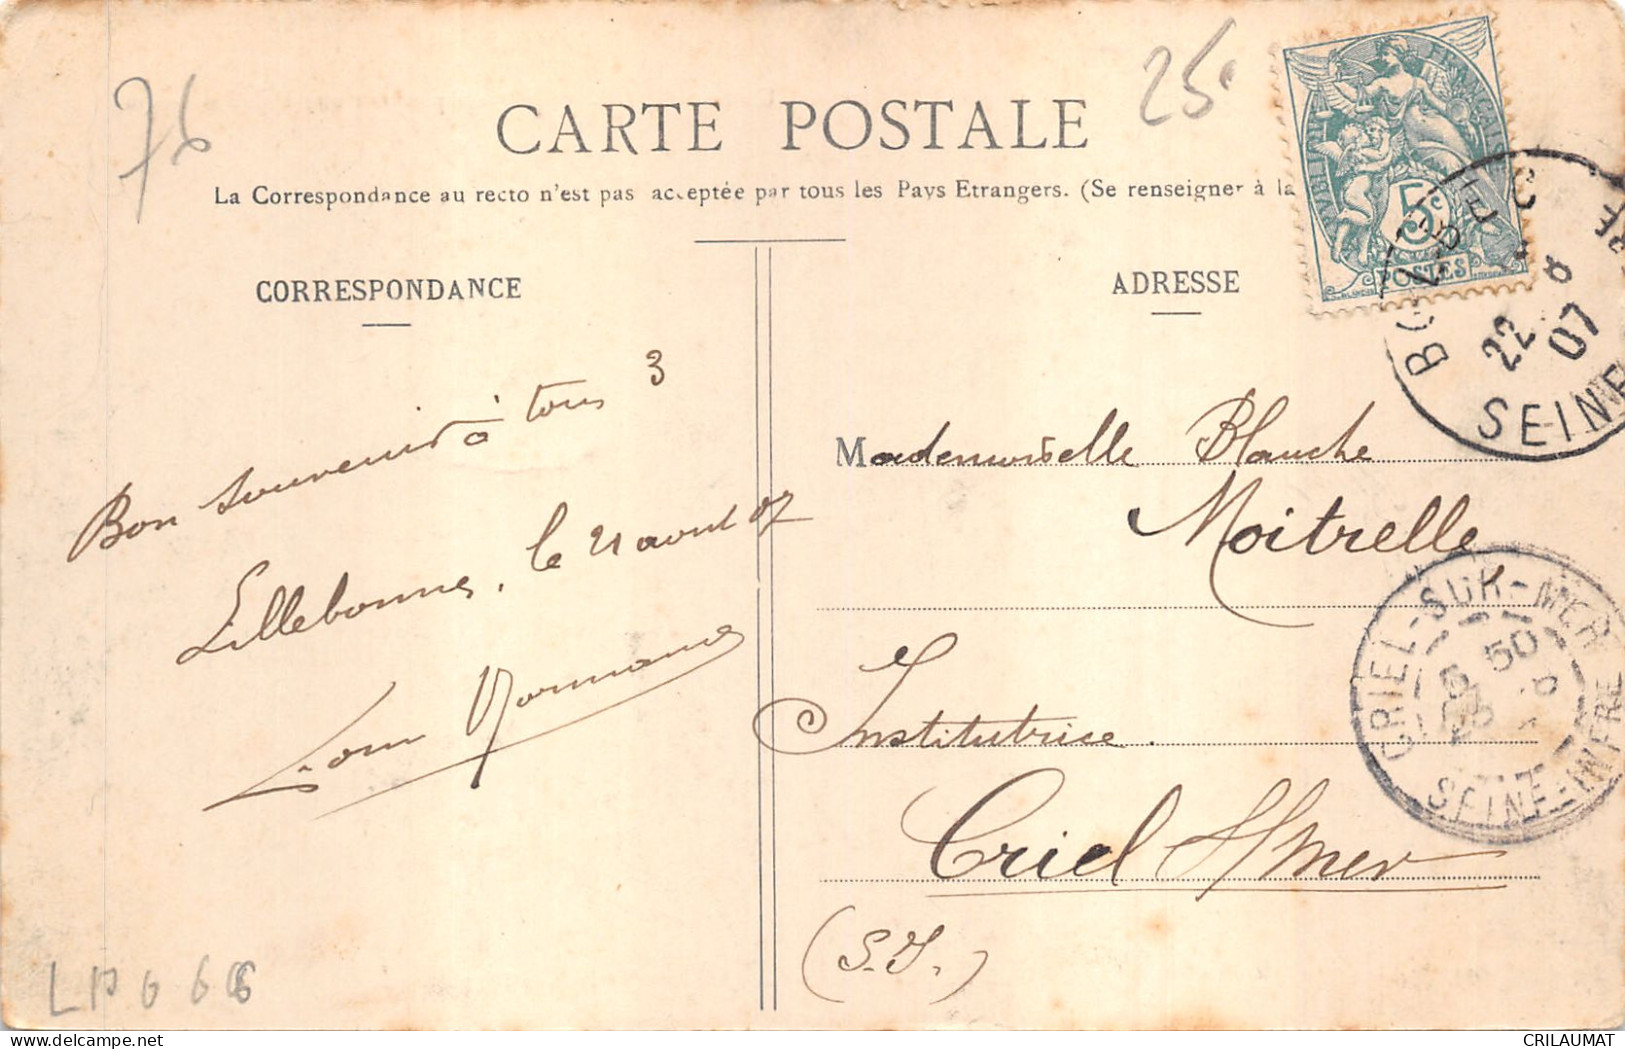 76
25c
CARTE POSTALE
La Correspondance au recto n'est pas acceptée par tous les Pays Etrangers. (Se renseigner à la
CORRESPONDANCE
Bon souvenir à tous 3
Lillebonne, le 21 aout 07
ADRESSE
Mademoiselle Blanche
Moitrelle
Institutrice.
Criel s/mer
(S.I.)
5c
POSTES
22 8
07
SEINE
CRIEL-SUR-MER
5 50
SEINE-INFRE
LP 6 66
delcampe.net
CRILAUMAT